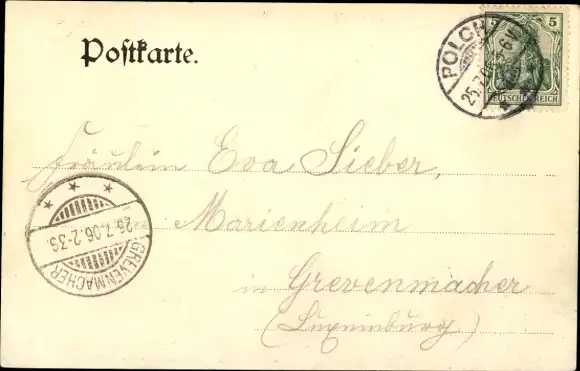 Postkarte.
POLCH
25.7.06. 5-6 N
5
DEUTSCHES REICH
Fräulein Eva Sieber,
Marienheim
in Grevenmacher
(Luxemburg)
26.7.06.2-3S
GREVENMACHER